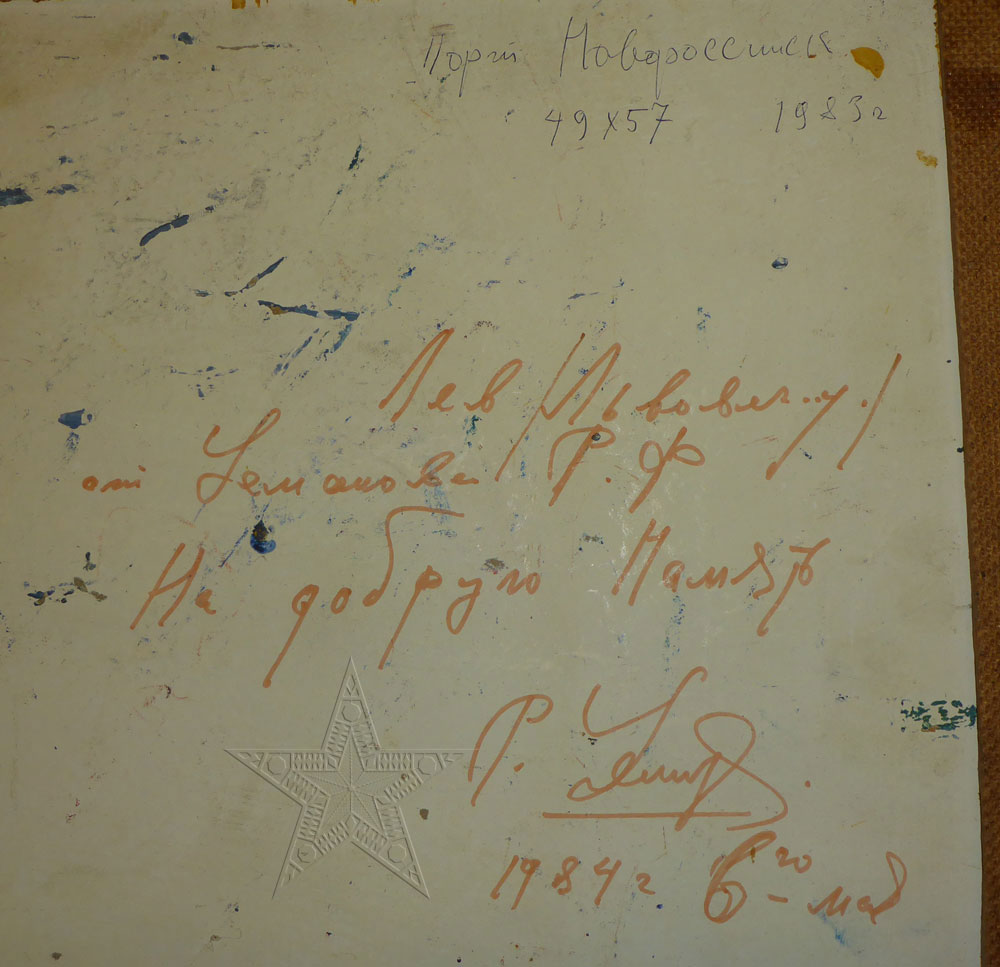 Порт Новороссийск
49х57 1983г
Лев /Львович..у./
от Чемакова Р.Ф
На добрую Память
Р.
1984г 6го - мая